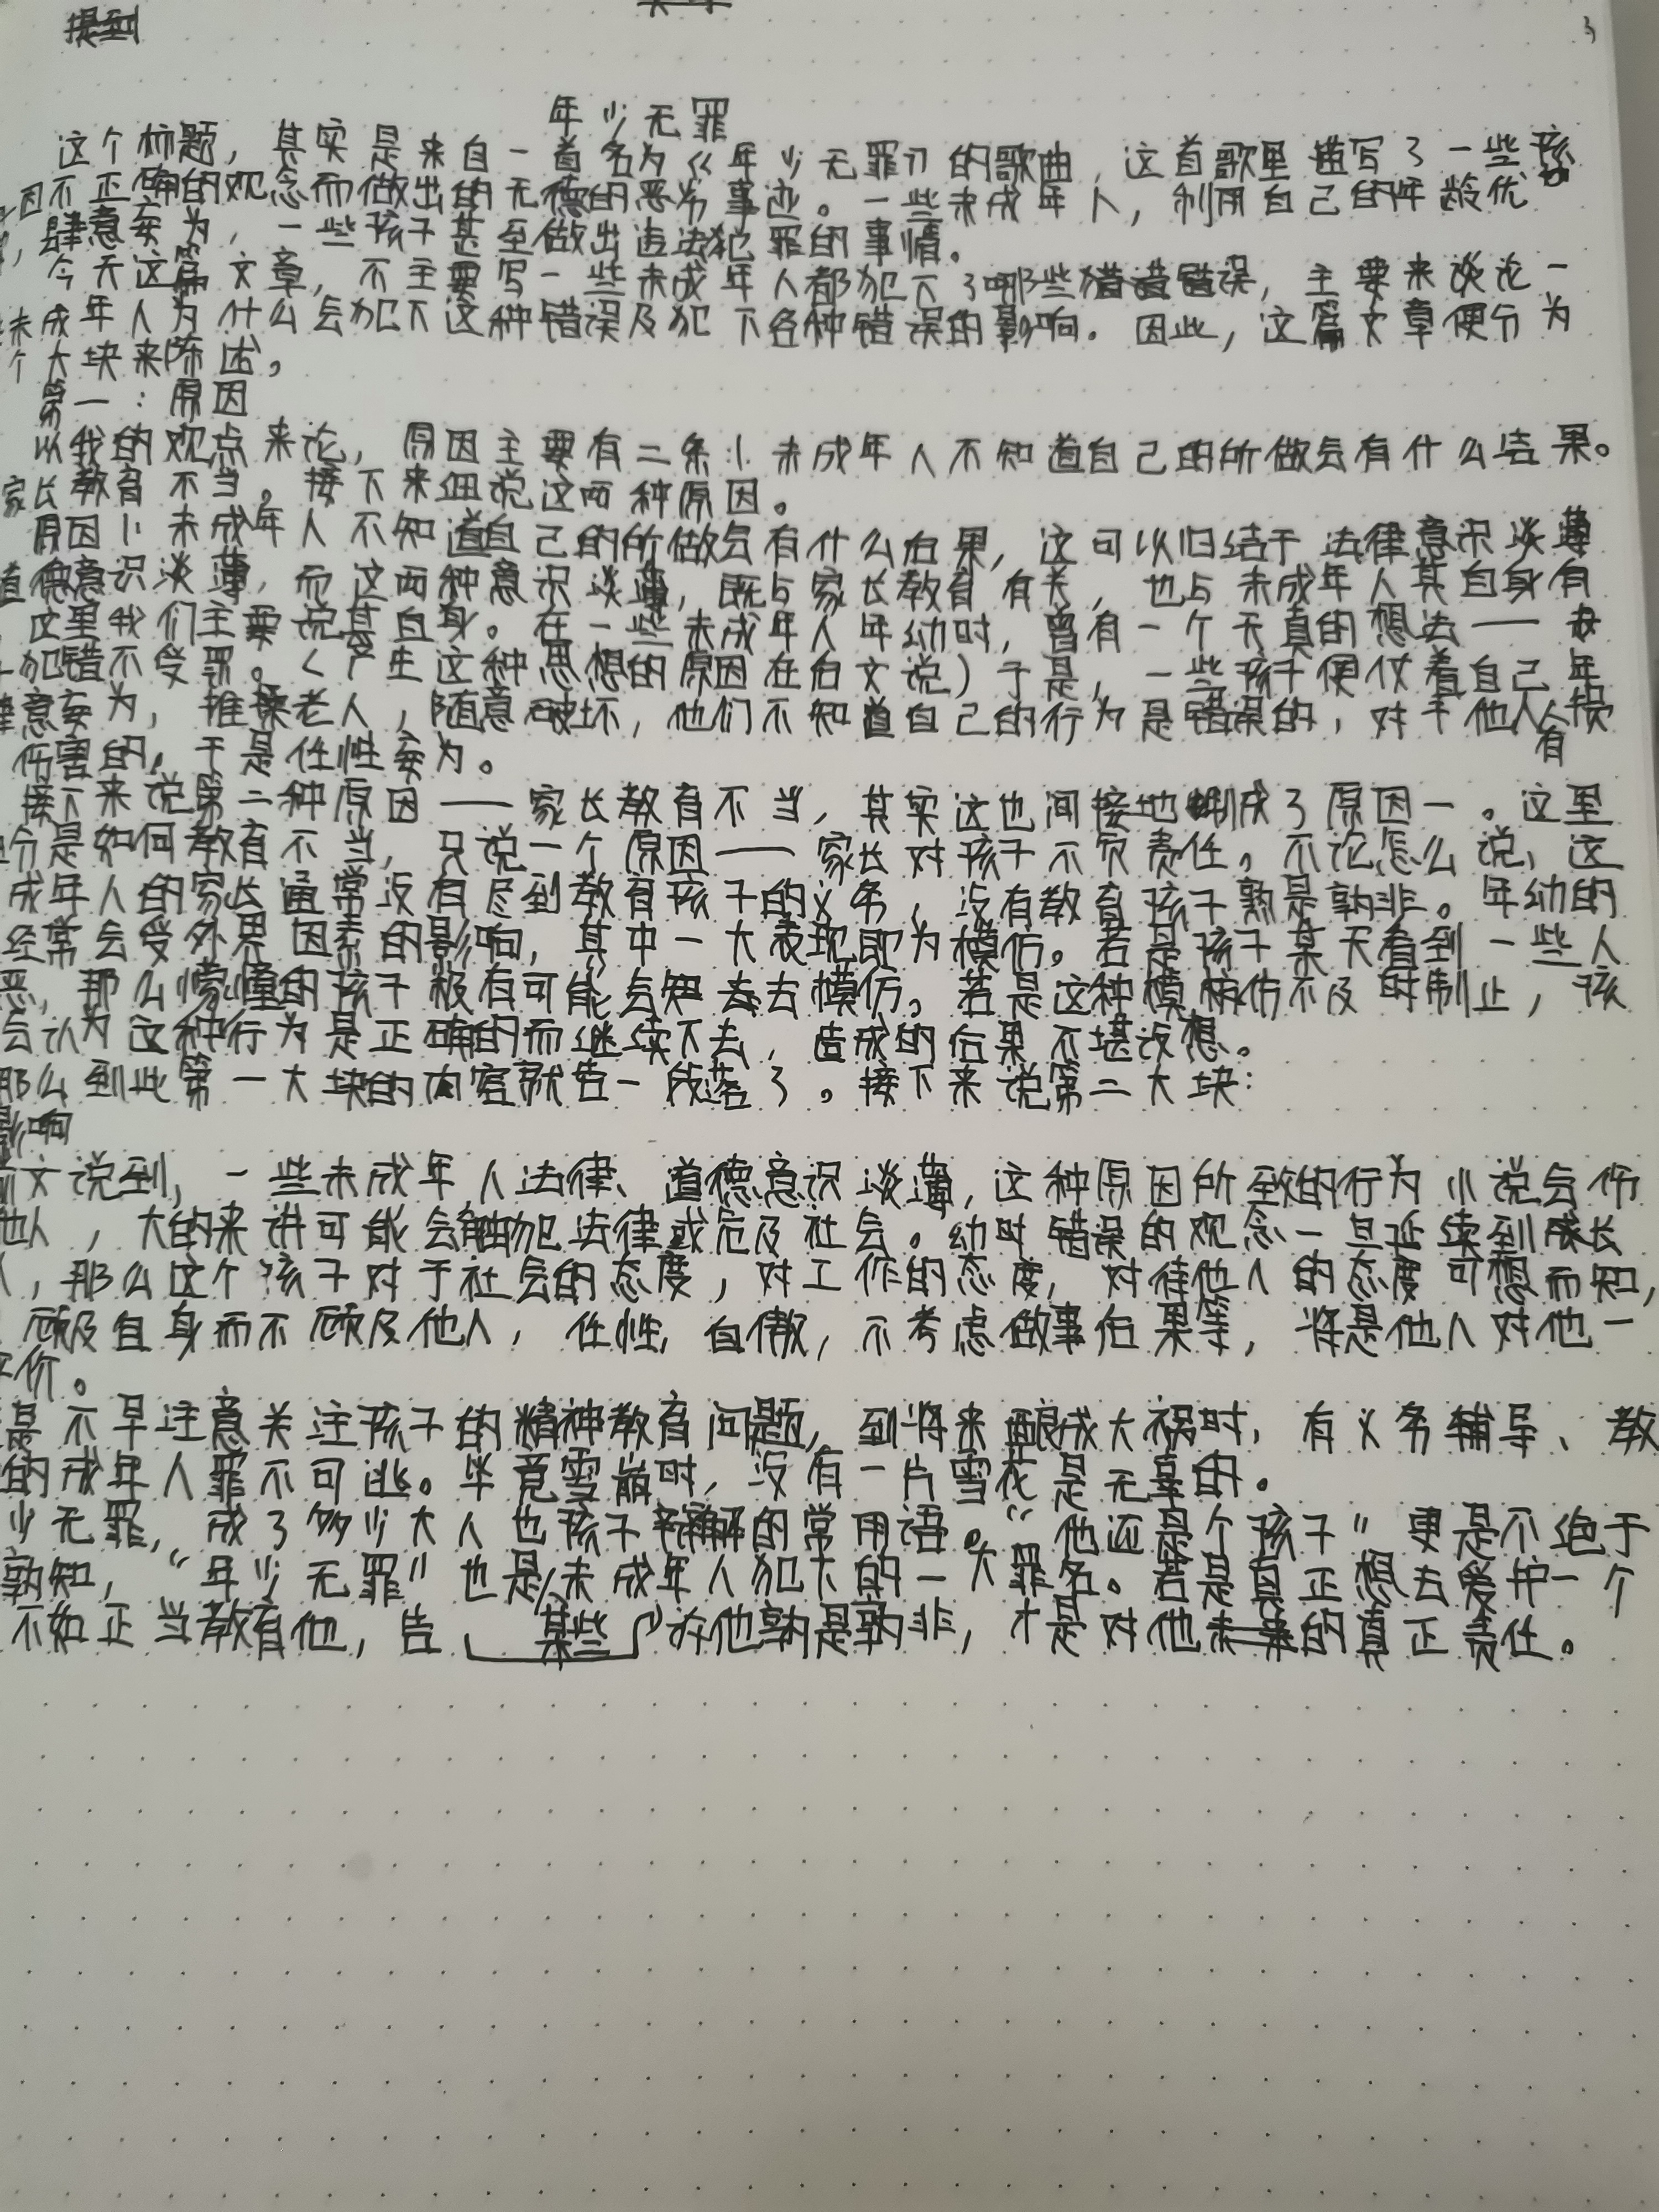 提到
3
年少无罪
这个标题，其实是来自一首名为《年少无罪》的歌曲，这首歌里描写了一些孩
因不正确的观念而做出的无德的恶劣事迹。一些未成年人，利用自己的年龄优
，肆意妄为，一些孩子甚至做出违法犯罪的事情。
今天这篇文章，不主要写一些未成年人都犯下了哪些错误，主要来谈论一
未成年人为什么会犯下这种错误及犯下各种错误的影响。因此，这篇文章便分为
个大块来陈述。
第一：原因
以我的观点来论，原因主要有二条：1.未成年人不知道自己的所做会有什么结果。
家长教育不当。接下来细说这两种原因。
原因1：未成年人不知道自己的所做会有什么后果，这可以归结于法律意识淡薄
道德意识淡薄，而这两种意识淡薄，既与家长教育有关，也与未成年人其自身有
这里我们主要说其自身。在一些未成年人年幼时，曾有一个天真的想法——
犯错不受罪。（产生这种思想的原因在后文说）于是，一些孩子便仗着自己年
肆意妄为，推搡老人，随意破坏，他们不知道自己的行为是错误的，对于他人会有损
伤害的，于是任性妄为。
接下来说第二种原因——家长教育不当，其实这也间接地酿成了原因一。这里
分是如何教育不当，只说一个原因——家长对孩子不负责任。不论怎么说，这
成年人的家长通常没有尽到教育孩子的义务，没有教育孩子熟是孰非。年幼的
经常会受外界因素的影响，其中一大表现即为模仿。若是孩子某天看到一些人
恶，那么懵懂的孩子极有可能会去模仿。若是这种模仿不及时制止，孩
会认为这种行为是正确的而继续下去，造成的后果不堪设想。
那么到此第一大块的内容就告一段落了。接下来说第二大块：
影响
前文说到，一些未成年人法律、道德意识淡薄，这种原因所致的行为小说会伤
他人，大的来讲可能会触犯法律或危及社会。幼时错误的观念一旦延续到成长
，那么这个孩子对于社会的态度，对工作的态度，对待他人的态度可想而知，
顾及自身而不顾及他人，任性，自傲，不考虑做事后果等，将是他人对他一
评价。
是不早注意关注孩子的精神教育问题，到将来酿成大祸时，有义务辅导、教
的成年人罪不可逃。毕竟雪崩时，没有一片雪花是无辜的。
少无罪，成了多少大人也孩子辩解的常用语。“他还是个孩子”更是不绝于
熟知，“年少无罪”也是未成年人犯下的一大罪名。若是真正想去爱护一个
不如正当教育他，告某些他孰是孰非，才是对他未来的真正责任。